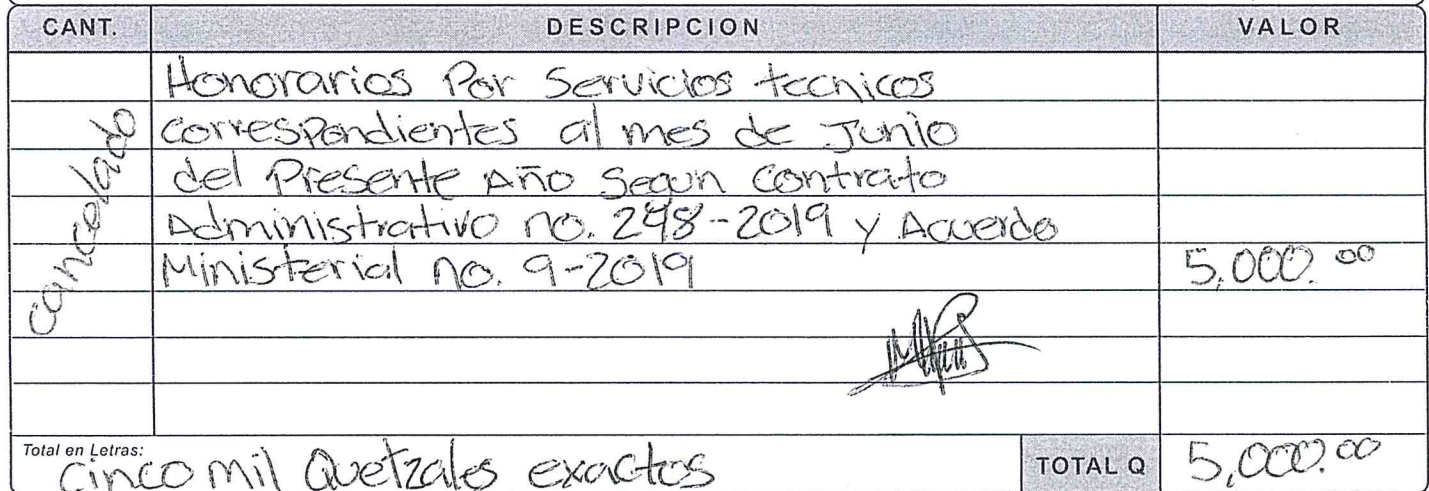 CANT. DESCRIPCION VALOR
Honorarios Por Servicios tecnicos
correspondientes al mes de Junio
del Presente Año Segun Contrato
Administrativo no. 248-2019 y Acuerdo
Ministerial no. 9-2019 5,000.00
cancelado
Total en Letras: cinco mil Quetzales exactos TOTAL Q 5,000.00